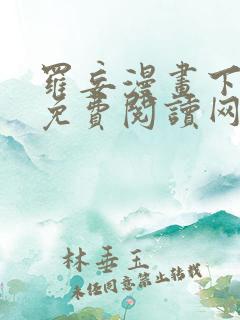 羅妄漫畫下
免費閱讀网
林垂玉
未经同意禁止转载